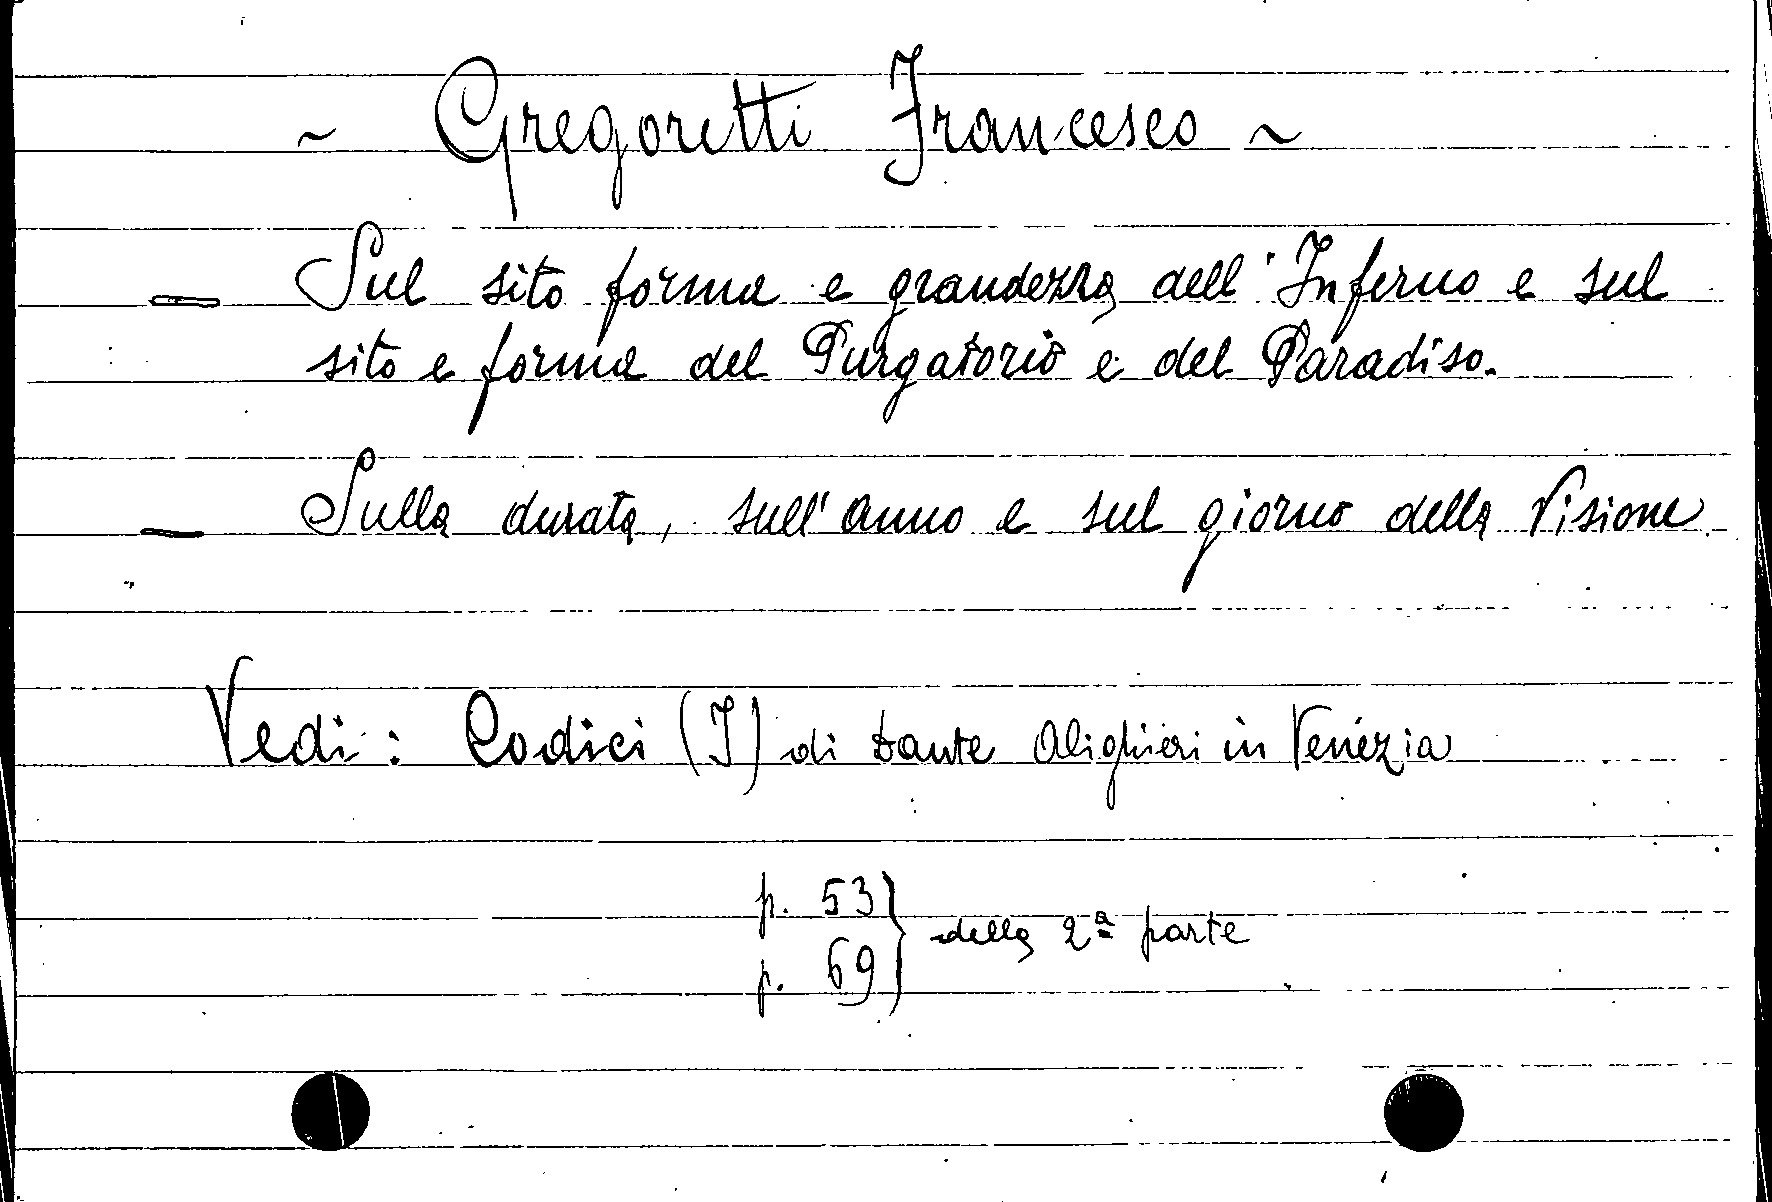 ~ Gregoretti Francesco ~
— Sul sito forma e grandezza dell'Inferno e sul
sito e forma del Purgatorio e del Paradiso.
— Sulla durata, sull'anno e sul giorno della Visione
Vedi: Codici (I) di Dante Alighieri in Venezia
p. 53 } della 2ª parte
p. 69